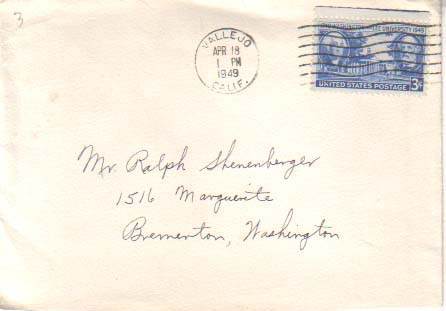 3
VALLEJO
APR 18
1 PM
1949
CALIF.
UNIVERSITY 1949
UNITED STATES POSTAGE 3¢
Mr. Ralph Shenenberger
1516 Marguerite
Bremerton, Washington